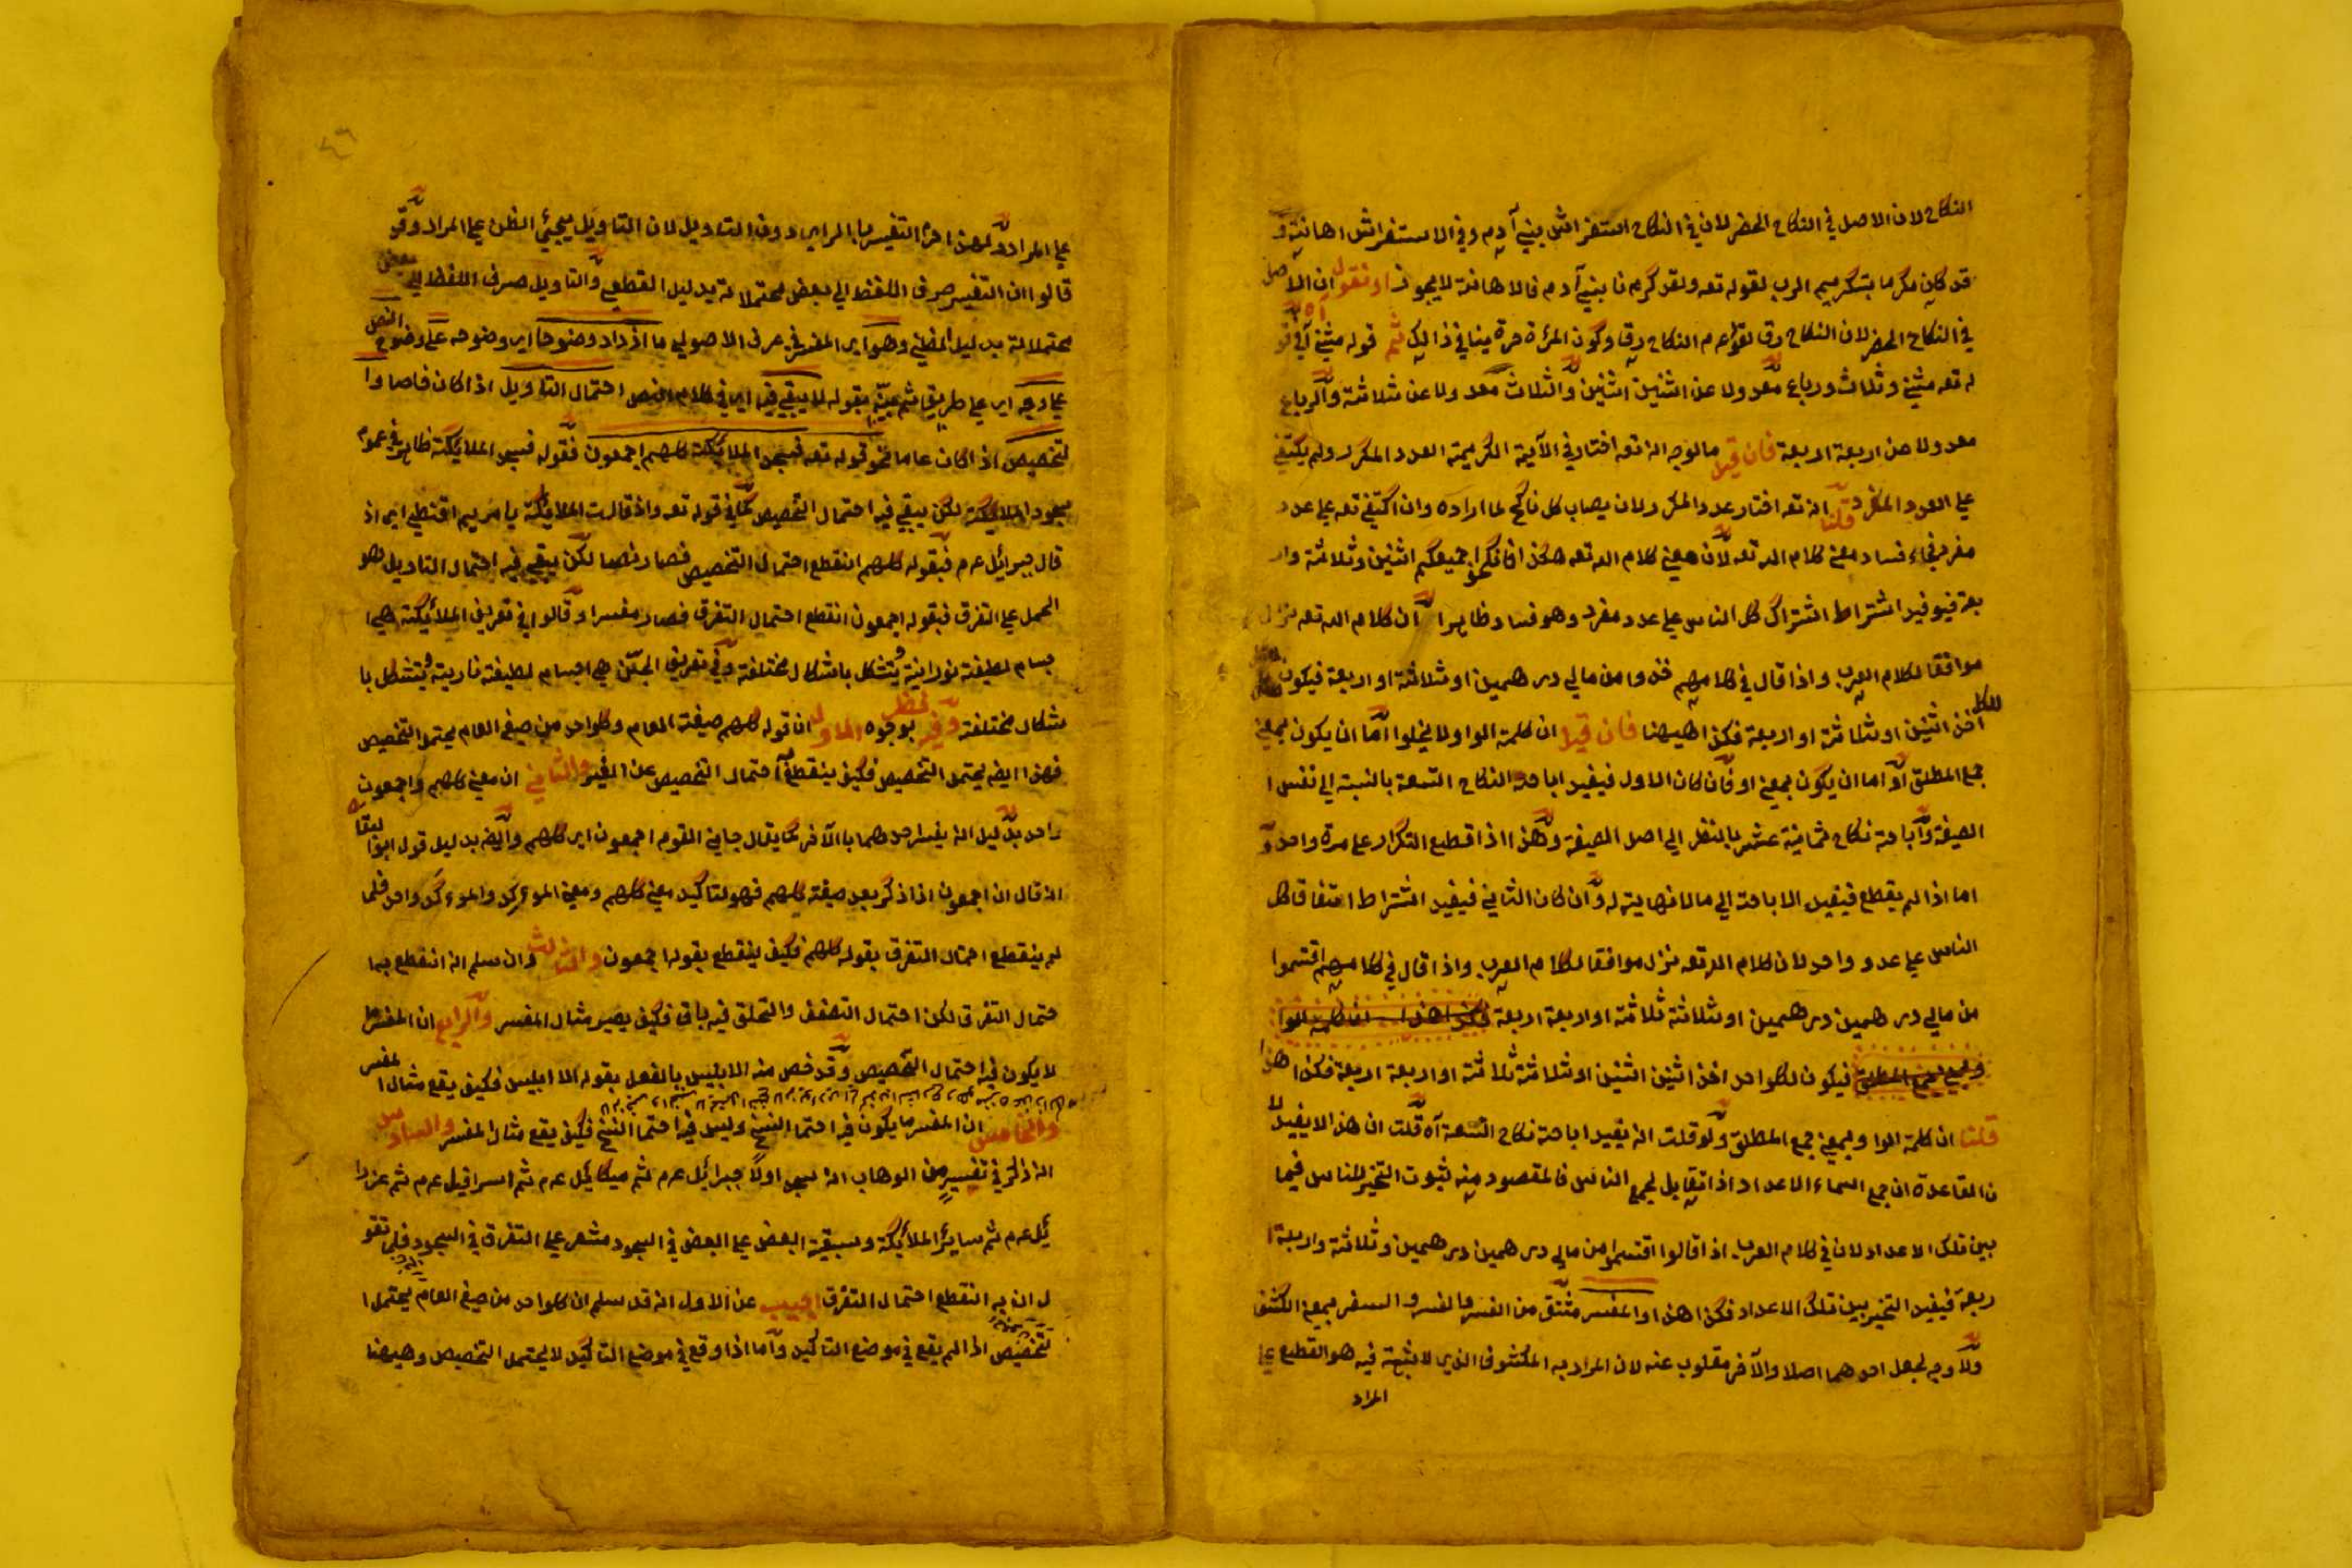 النكاح لان الاصل في النكاح الحضر لان في النكاح استفراش بني آدم وفي الاستفراش اهانية و
قد كان مكرما بتكريم الرب لقوله تعه ولقد كرمنا بني آدم فالاهانة لايجوز او نقول ان الاصل
في النكاح الحضر لان النكاح رق لقوله عم النكاح رق وكون المرءة حرة ينافي ذالك ثم قوله مثني آه في قو
له تعه مثني وثلاث ورباع معدولا عن اثنين اثنين والثلاث معدولا عن ثلاثة والرباع
معدولا عن اربعة اربعة فان قيل مالوجه انه تعه اختار في الآية الكريمة العدد المكرر ولم يكتفي
علي العدد المفرد قلنا انه تعه اختار عدد المكرر لان يصاب كل ناكح لما اراده وان اكتفي تعه علي عدد
مفرد فجاء فساد معني كلام الله تعه لان معني كلام الله تعه هكذا فانكحوا جميعكم اثنين وثلاثة وار
بعة فيوفيد اشتراط اشتراك كل الناس علي عدد مفرد وهو فساد ظاهرا لان كلام الله تعه نزل
موافقا لكلام العرب واذا قال في كلامهم خذوا من مالي درهمين او ثلاثة او اربعة فيكون
للكل اخذ اثنين او ثلاثة او اربعة فكذا هيهنا فان قيل ان كلمة الواو لا يخلوا اما ان يكون بمعني
جمع المطلق او اما ان يكون بمعني او فان كان الاول فيفيد اباحة النكاح التسعة بالنسبة الي نفس ا
لصيغة واباحة نكاح ثمانية عشر بالنظر الي اصل الصيغة وهذا اذا قطع التكرار علي مرة واحدة و
اما اذا لم يقطع فيفيد الاباحة الي مالا نهاية له وان كان الثاني فيفيد اشتراط اتفاق كل
الناس علي عدد واحد لان كلام الله تعه نزل موافقا لكلام العرب واذا قال في كلامهم اقتسموا
من مالي درهمين درهمين او ثلاثة ثلاثة او اربعة اربعة
فيكون لكل واحد اخذ اثنين اثنين او ثلاثة ثلاثة او اربعة اربعة فكذا هذا
قلنا ان كلمة الواو بمعني جمع المطلق ولو قلت انه يفيد اباحة نكاح التسعة آه قلت ان هذا لا يفيد لا
ن القاعدة ان جمع اسماء الاعداد اذا تقابل بجمع الناس فالمقصود منه ثبوت التخير للناس فيما
بين تلك الاعداد لان في كلام العرب اذا قالوا اقتسموا من مالي درهمين درهمين وثلاثة واربعة ا
ربعة فيفيد التخير بين تلك الاعداد فكذا هذا والمفسر مشتق من الفسر والفسر والسفر بمعني الكشف
ولا وجه لجعل احدهما اصلا والآخر مقلوب عنه لان المراد به المكشوف الذي لا شبهة فيه هو القطع علي
المراد
٤٦
علي المراد ولهذا حرم التفسير با الراي دون التاويل لان التاويل يجئ الظن علي المراد وقد
قالوا ان التفسير صرف اللفظ الي بعض محتملاته بدليل القطعي والتاويل صرف اللفظ الي بعض
محتملاته بدليل الظني وهو اي المفسر في عرف الاصولي ما ازداد وضوحا اي وضوحه علي وضوح النص
علي وجه اي علي طريق ثم بينه بقوله لا يبقي فيه اي في كلام النص احتمال التاويل اذا كان خاصا وا
لتخصيص اذا كان عاما نحو قوله تعه فسجد الملائكة كلهم اجمعون فقوله فسجد الملائكة ظاهر في عموم
سجود الملائكة لكن يبقي فيه احتمال التخصيص كما في قوله تعه واذ قالت الملائكة يا مريم اقنطي اي اذ
قال جبرائيل عم فبقوله كلهم انقطع احتمال التخصيص فصار نصا لكن يبقي فيه احتمال التاويل وهو
الحمل علي التفرق فبقوله اجمعون انقطع احتمال التفرق فصار مفسرا وقالوا في تعريف الملائكة هي ا
جسام لطيفة نورانية يتشكل باشكال مختلفة وفي تعريف الجن هي اجسام لطيفة نارية يتشكل با
شكال مختلفة وفيه نظر بوجوه الاول ان قوله كلهم صيغة العام وكل واحد من صيغ العام يحتمل التخصيص
فهذا ايضه يحتمل التخصيص فكيف ينقطع احتمال التخصيص عن الغير والثاني ان معني كلهم واجمعون
واحد بدليل انه يفسر احدهما با الآخر كما يقال جاءني القوم اجمعون اي كلهم وايضه بدليل قول ابو البقا
انه قال ان اجمعون اذا ذكر بعد صيغة كلهم فهو لتاكيد معني كلهم ومعني الموءكد والموءكد واحد فلما
لم ينقطع احتمال التفرق بقوله كلهم فكيف ينقطع بقوله اجمعون والثالث وان سلم انه انقطع بها
حتمال التفرق لكن احتمال التصفف والتحلق فيه باق فكيف يصير مثال المفسر والرابع ان المفسر ما
لا يكون فيه احتمال التخصيص وقد خص منه الابليس بالفعل بقوله الا ابليس فكيف يقع مثال المفسر
والخامس ان المفسر ما يكون فيه احتما النسخ وليس فيه احتما النسخ فكيف يقع مثال المفسر والسادس
انه ذكر في تفسير من الوهاب انه سجد اولا جبرائيل عم ثم ميكائيل عم ثم اسرافيل عم ثم عزرا
ئيل عم ثم سائر الملائكة وسبقية البعض علي البعض في السجود مشعر علي التفرق في السجود فلم تقو
ل ان به انقطع احتمال التفرق اجيب عن الاول انه قد سلم ان كل واحد من صيغ العام يحتمل ا
لتخصيص اذا لم يقع في موضع التاكيد واما اذا وقع في موضع التاكيد لا يحتمل التخصيص وهيهنا